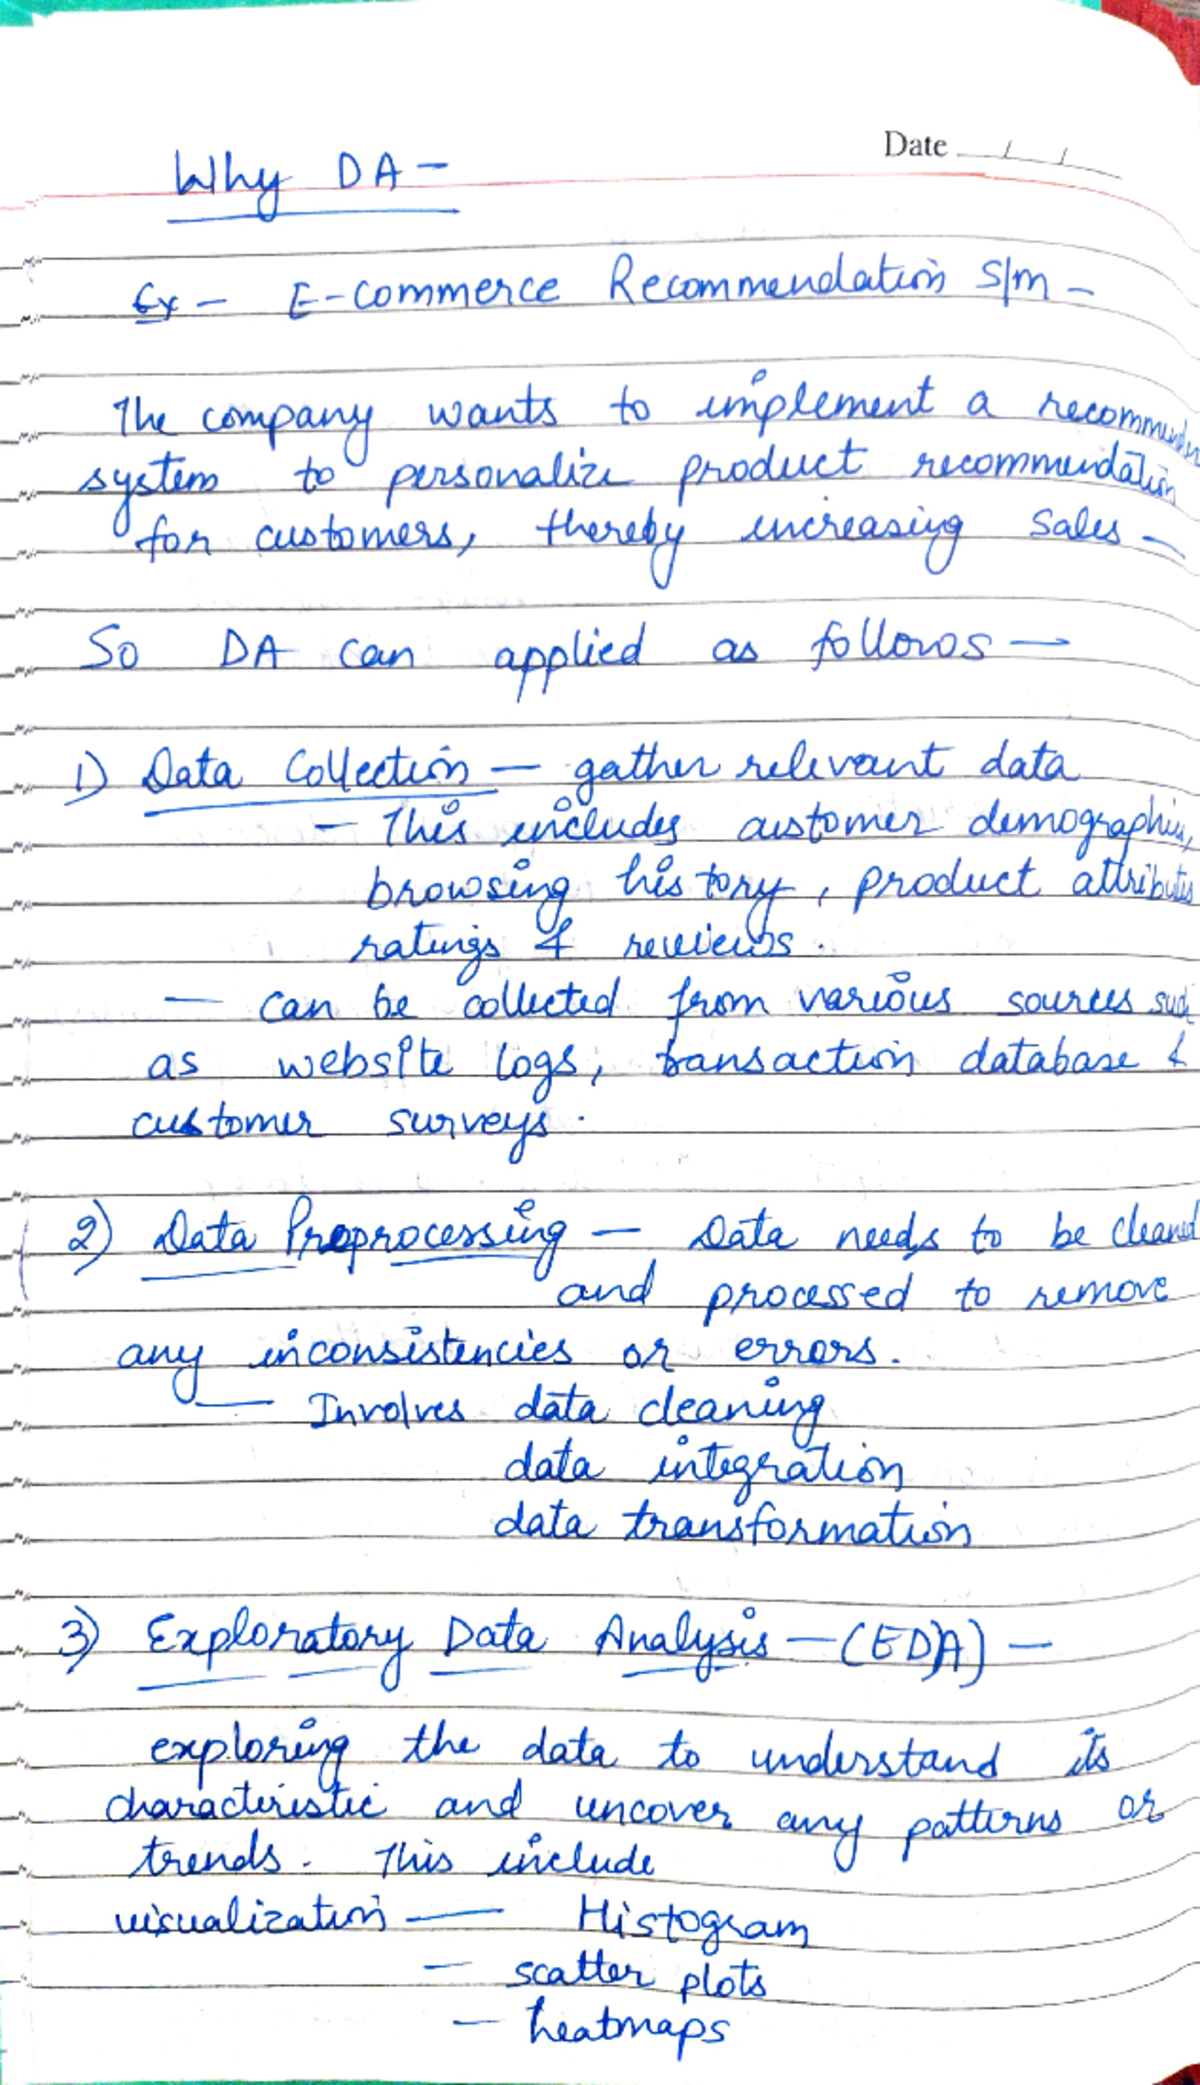 Date / /
Why DA -
Ex - E-commerce Recommendation S/m -
The company wants to implement a recommender
system to personalize product recommendation
for customers, thereby increasing sales -
So DA can applied as follows —
1) Data Collection — gather relevant data
— This includes customer demographics,
browsing history, product attributes
ratings & reviews.
— can be collected from various sources such
as website logs, transaction database &
customer surveys.
2) Data Preprocessing — Data needs to be cleaned
and processed to remove
any inconsistencies or errors.
— Involves data cleaning
data integration
data transformation
3) Exploratory Data Analysis — (EDA) —
exploring the data to understand its
characteristic and uncover any patterns or
trends. This include
visualization — Histogram
— scatter plots
— heatmaps